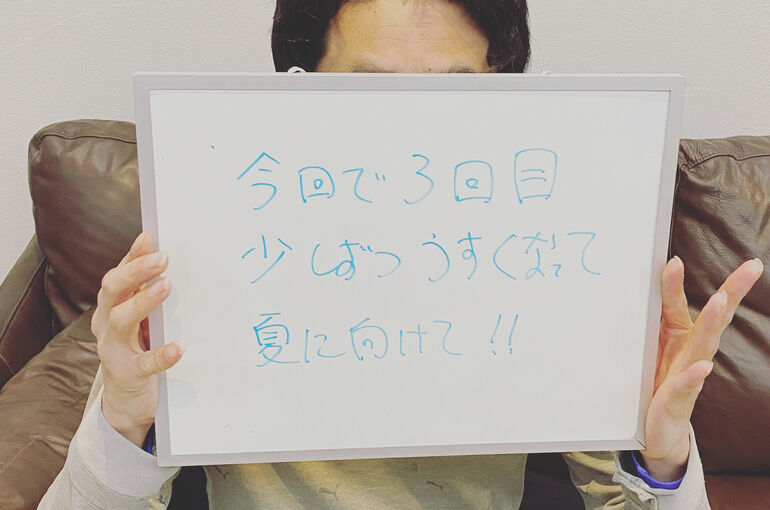 今回で3回目
少しずつうすくなって
夏に向けて!!